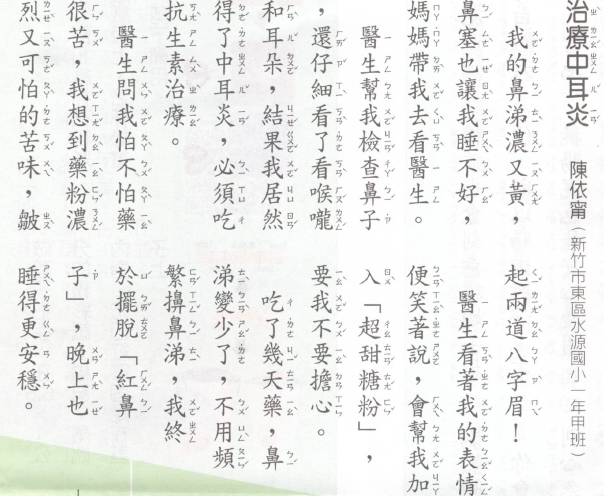 治療中耳炎
陳依甯（新竹市東區水源國小一年甲班）
我的鼻涕濃又黃，
鼻塞也讓我睡不好，
媽媽帶我去看醫生。
醫生幫我檢查鼻子
，還仔細看了看喉嚨
和耳朵，結果我居然
得了中耳炎，必須吃
抗生素治療。
醫生問我怕不怕藥
很苦，我想到藥粉濃
烈又可怕的苦味，皺
起兩道八字眉！
醫生看著我的表情
便笑著說，會幫我加
入「超甜糖粉」，
要我不要擔心。
吃了幾天藥，鼻
涕變少了，不用頻
繁擤鼻涕，我終
於擺脫「紅鼻
子」，晚上也
睡得更安穩。